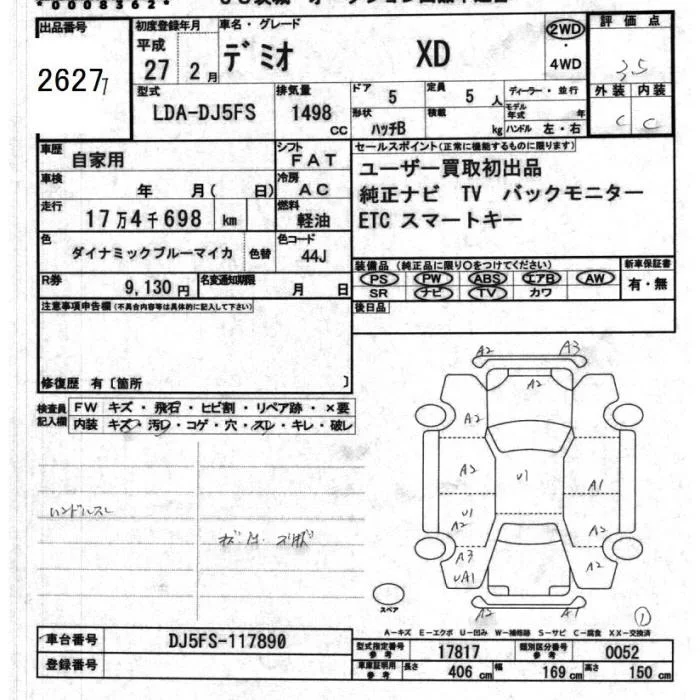 *00008362*
出品番号 初度登録年月 車名・グレード 2WD 評価点
平成
27 2 月 デミオ XD ・ 4WD 3.5
26277
型式 排気量 ドア 定員 ディーラー・並行 外装 内装
5 5 人 モデル年式 年
LDA-DJ5FS 1498 cc 形状 積載 C C
ハッチB kg ハンドル 左・右
車歴 自家用 シフト FAT セールスポイント(正常に機能するものに限ります)
ユーザー買取初出品
車検 年 月( 日) 冷房 AC 純正ナビ TV バックモニター
走行 17万4千698 km 燃料 軽油 ETC スマートキー
色 ダイナミックブルーマイカ 色替 色コード 44J
装備品(純正品に限り○をつけてください) 新車保証書
R券 9,130円 名変通知期限 月 日 PS PW ABS エアB AW 有・無
SR ナビ TV カワ
注意事項申告欄(不具合内容等は具体的に記入して下さい) 後日品
修復歴 有〔箇所 〕
検査員記入欄 FW キズ・飛石・ヒビ割・リペア跡・×要
内装 キズ・汚レ・コゲ・穴・スレ・キレ・破レ
ハンドルスレ
A2 A3
A2
A2
A2 U1 A1
U1
A2 A2
A3 A2
UA1
A2 A1
スペア ①
A-キズ E-エクボ U-凹み W-補修跡 S-サビ C-腐食 XX-交換済
車台番号 DJ5FS-117890 型式指定番号 参考 17817 類別区分番号 参考 0052
登録番号 車庫証明用 参考 長さ 406 cm 幅 169 cm 高さ 150 cm